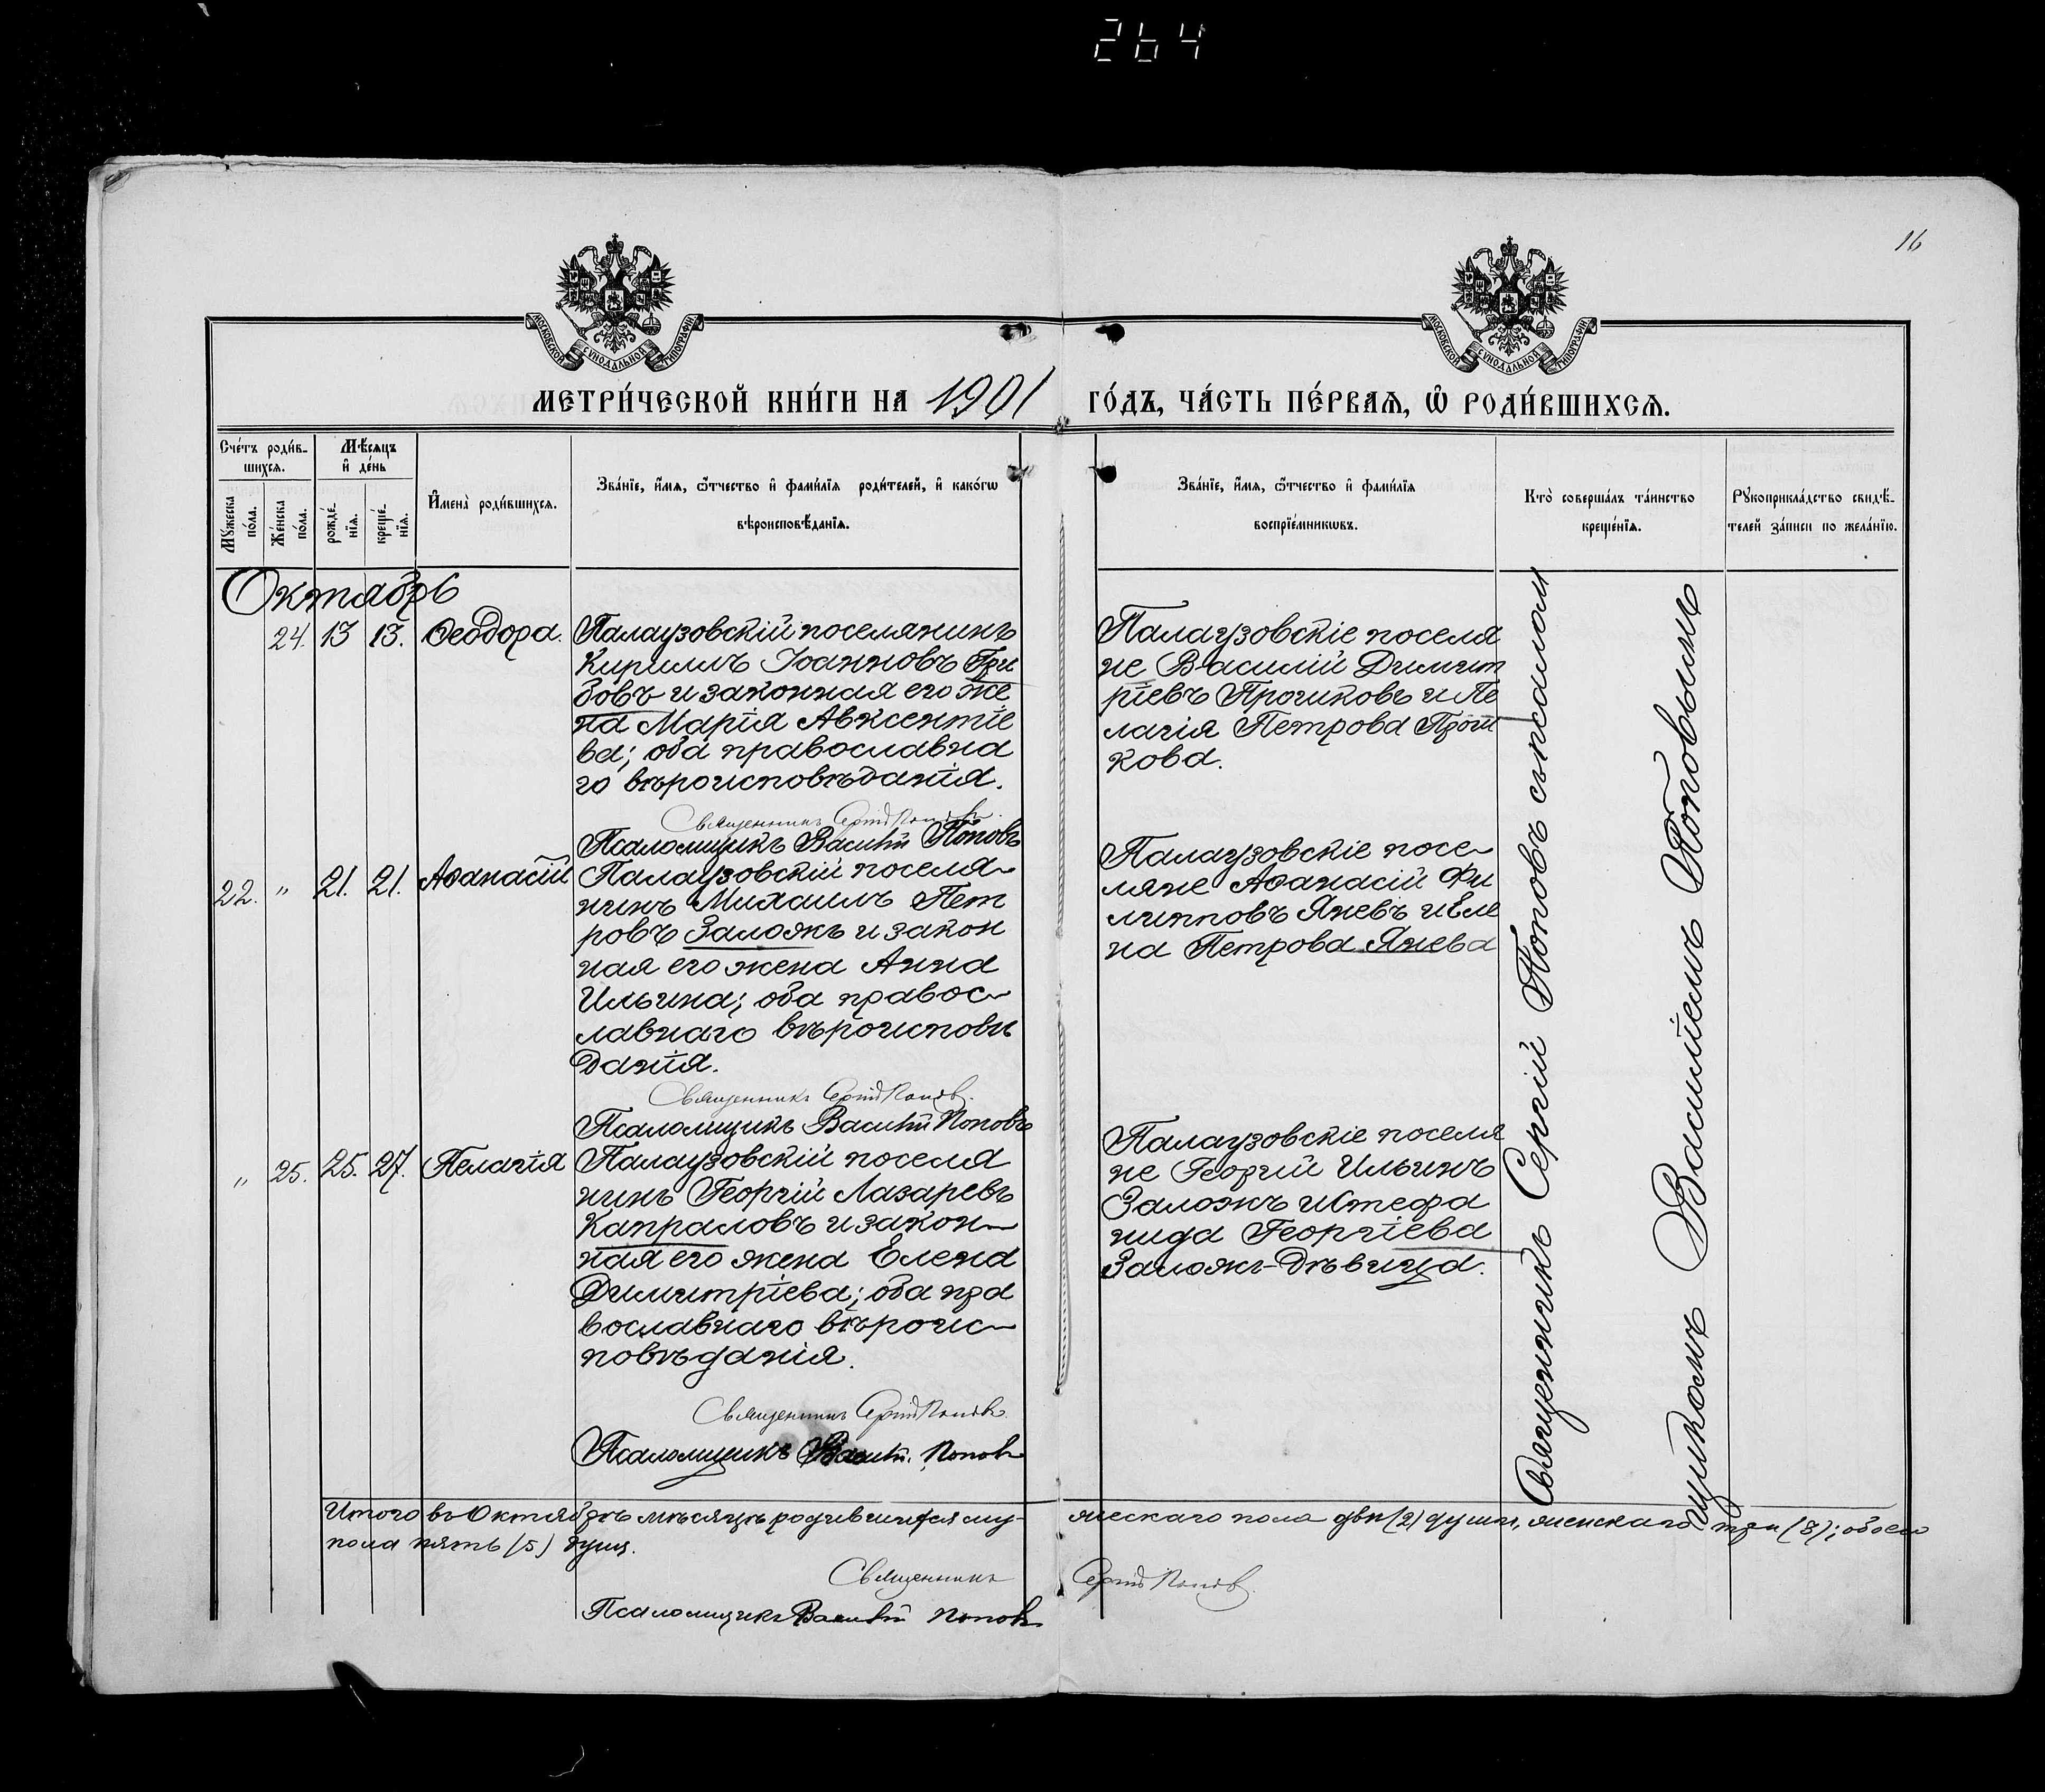 264
16
МОСКОВСКОЙ СѴНОДАЛЬНОЙ ТИПОГРАФІИ
МОСКОВСКОЙ СѴНОДАЛЬНОЙ ТИПОГРАФІИ
МЕТРИ́ЧЕСКОЙ КНИ́ГИ НА 1901 ГО́ДЪ, ЧА́СТЬ ПЕ́РВАѦ, Ѡ҆ РОДИ́ВШИХСѦ.
Сче́тъ роди́в-
шихсѧ.
Мꙋ́жеска по́ла.
Же́нска по́ла.
Мѣ́сѧцъ
и҆ де́нь
рожде́-
нїѧ.
креще́-
нїѧ.
И҆мена̀ роди́вшихсѧ.
Зва́нїе, и҆́мѧ, ѻ҆́тчество и҆ фами́лїѧ роди́телей, и҆ како́гѡ
вѣроисповѣ́данїѧ.
Зва́нїе, и҆́мѧ, ѻ҆́тчество и҆ фами́лїѧ
воспрїе́мникѡвъ.
Кто̀ соверша́лъ та́инство
креще́нїѧ.
Рꙋкоприкла́дство свидѣ́-
телей за́писи по жела́нїю.
Октябрь
24. 13 13. Ѳеодора.
Палаузовскій поселянинъ
Кириллъ Іоанновъ Гри
бовъ и законная его же
на Марія Авксентіе
ва; оба православна
го вѣроисповѣданія.
Священникъ Сергій Поповъ.
Псаломщикъ Василій Поповъ
Палаузовскіе поселя
не Василій Димит
ріевъ Прошковъ и Пе
лагія Петрова Прош
кова.
22. " 21. 21. Аѳанасій
Палаузовскій поселя-
нинъ Михаилъ Пет
ровъ Заложъ и закон
ная его жена Анна
Ильина; оба правос-
лавнаго вѣроисповѣ
данія.
Священникъ Сергій Поповъ.
Псаломщикъ Василій Поповъ
Палаузовскіе посе-
ляне Аѳанасій Фи
липповъ Яневъ и Еле
на Петрова Янева
" 25. 25. 27. Пелагія
Палаузовскій поселя
нинъ Георгій Лазаревъ
Капраловъ и закон-
ная его жена Елена
Димитріева; оба пра
вославнаго вѣроис-
повѣданія.
Священникъ Сергій Поповъ
Псаломщикъ Василій Поповъ
Палаузовскіе поселя
не Георгій Ильинъ
Заложъ и Стефа
нида Георгіева
Заложъ-дѣвица.
Священникъ Сергій Поповъ съ псалом
щикомъ Василіемъ Поповымъ
Итого въ Октябрѣ мѣсяцѣ родившихся му- жескаго пола двѣ (2) души, женскаго три (3); обоего
пола пять (5) душъ.
Священникъ Сергій Поповъ.
Псаломщикъ Василій Поповъ